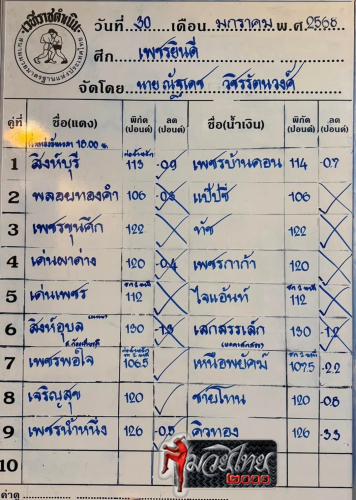 เวทีราชดำเนิน
วันที่ 30 เดือน มกราคม พ.ศ 2568
ศึก เพชรยินดี
จัดโดย นาย ณัฐเดช วชิรรัตนวงศ์
คู่ที่ ชื่อ(แดง) พิกัด (ปอนด์) ลด (ปอนด์) ชื่อ(น้ำเงิน) พิกัด (ปอนด์) ลด (ปอนด์)
18.00 น.
1 สิงห์บุรี 113 -0.9 เพชรบ้านดอน 114 -0.7
2 พลอยทองคำ 106 -0.8 แป๊ปซี่ 106
3 เพชรขุนศึก 122 ทัช 122
4 เด่นผาด่าง 120 -0.4 เพชรกาก้า 120
5 เด่นเพชร 112 ไจแอ้นท์ 112
6 สิงห์อุบล 130 -1.3 เสกสรรเล็ก 130 -1.2
7 เพชรพอใจ 106.5 เหนือพยัคฆ์ 107.5 -2.2
8 เจริญสุข 120 ชายโทน 120 -0.8
9 เพชรน้ำหนึ่ง 126 -0.5 คิวทอง 126 -3.3
10
มวยไทย
๒๐๐๐
ค่าดู